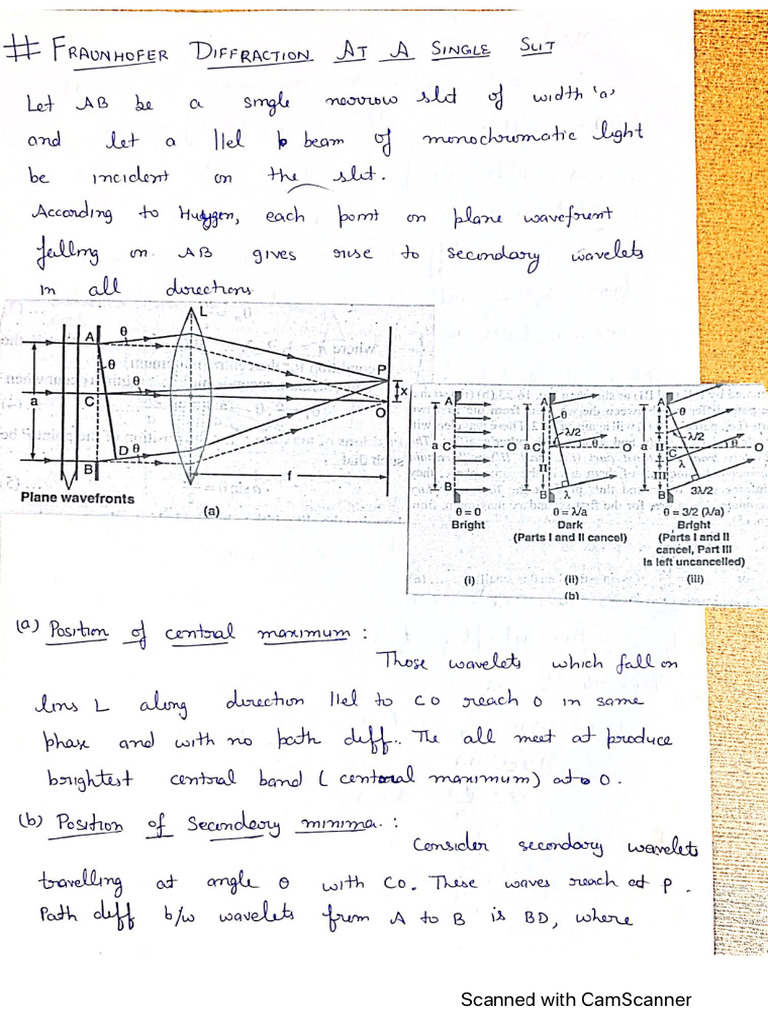 # FRAUNHOFER DIFFRACTION AT A SINGLE SLIT
Let AB be a single narrow slit of width 'a'
and let a llel beam of monochromatic light
be incident on the slit.
According to Huygen, each point on plane wavefront
falling on AB gives rise to secondary wavelets
in all directions
L
A θ
θ
θ
P
x
a
C
O
D θ
B
f
Plane wavefronts
(a)
A
a C O
B
θ = 0
Bright
(i)
A
I
θ
λ/2
a C θ O
II
B λ
θ = λ/a
Dark
(Parts I and II cancel)
(ii)
A
I
θ
λ/2
a II θ O
C
λ
III
B 3λ/2
θ = 3/2 (λ/a)
Bright
(Parts I and II
cancel, Part III
Is left uncancelled)
(iii)
(b)
(a) Position of central maximum :
Those wavelets which fall on
lens L along direction llel to CO reach O in same
phase and with no path diff.. The all meet at produce
brightest central band ( central maximum) at O.
(b) Position of Secondary minima. :
Consider secondary wavelets
travelling at angle θ with CO. These waves reach at P.
Path diff b/w wavelets from A to B is BD, where
Scanned with CamScanner